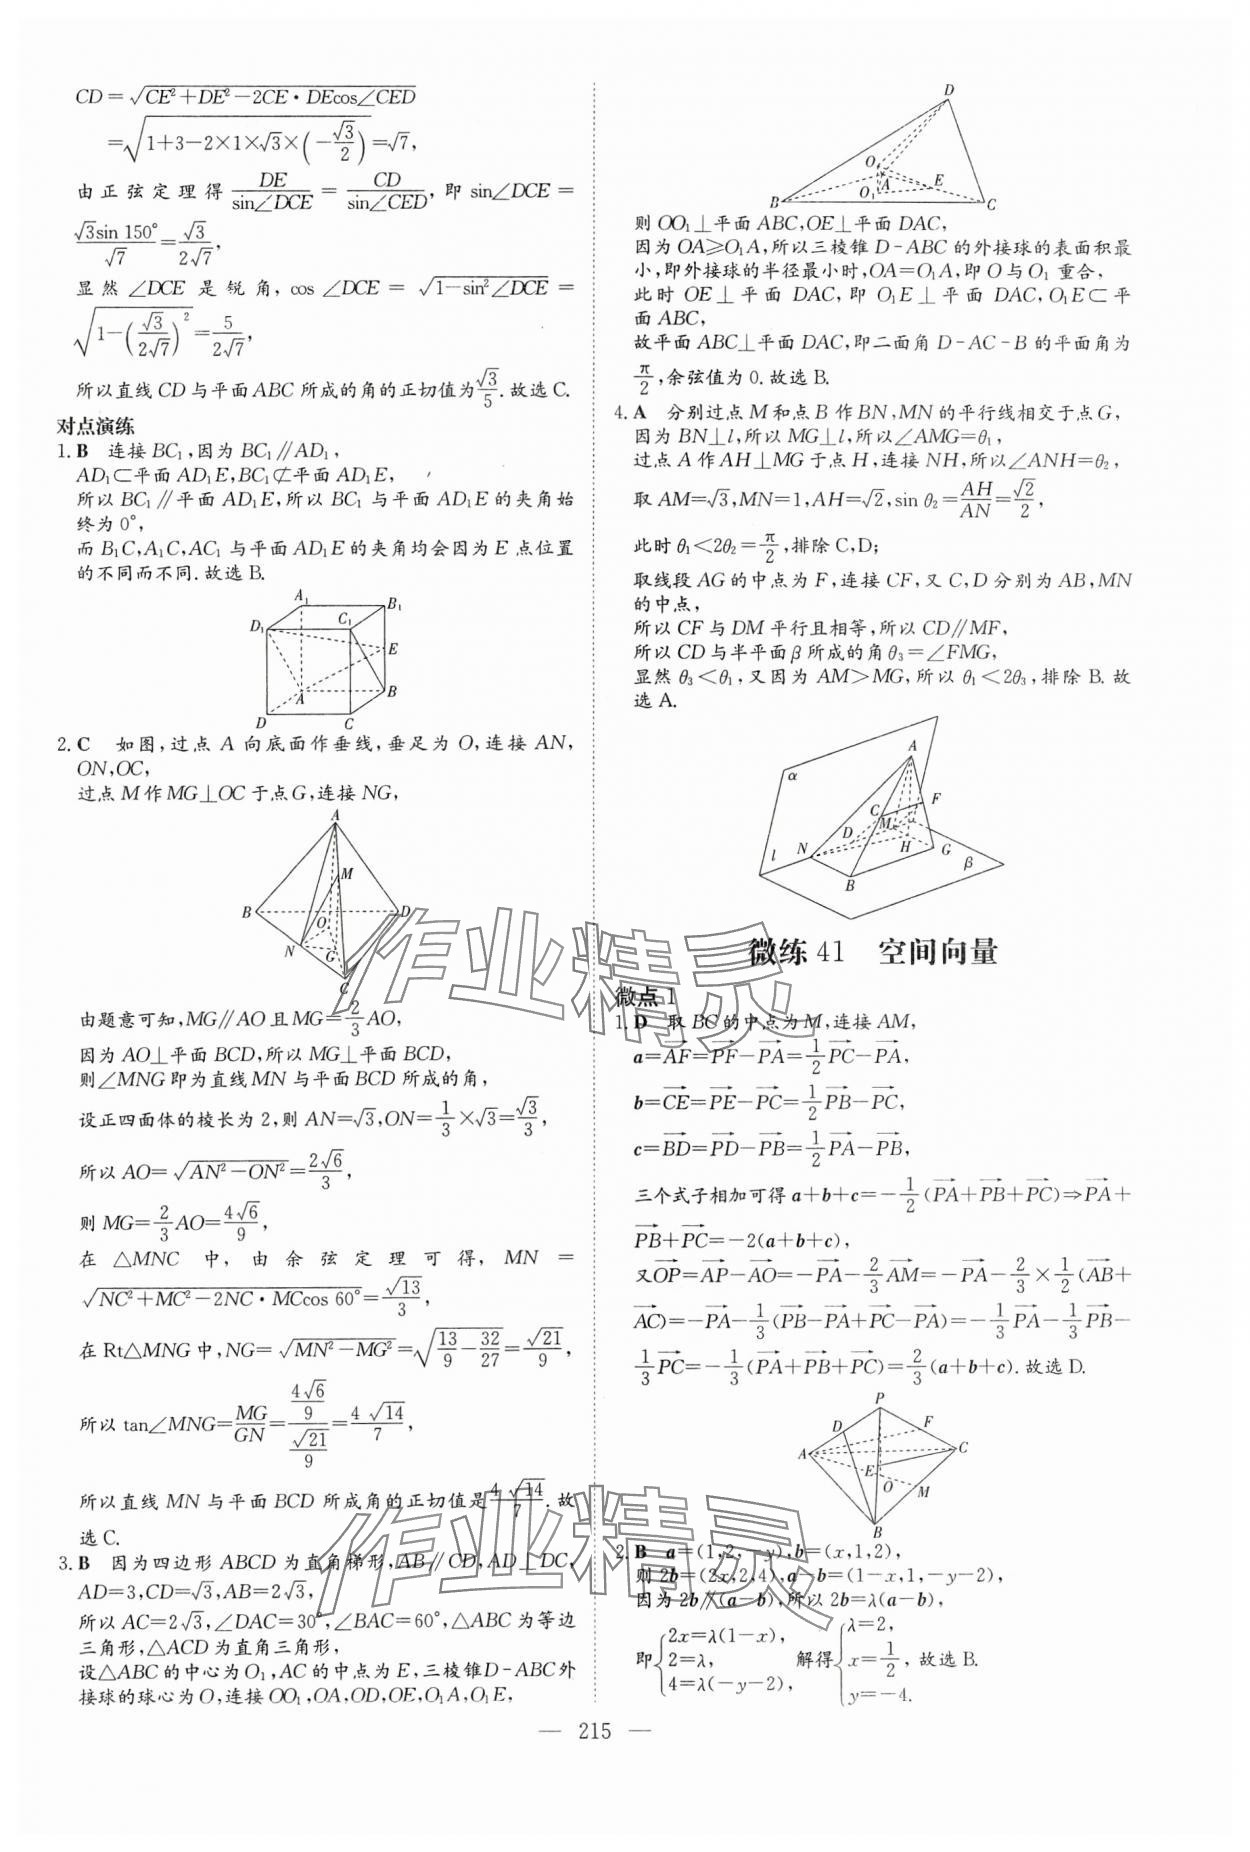 CD=√(CE²+DE²-2CE·DEcos∠CED)
=√(1+3-2×1×√3×(-√3/2))=√7,
由正弦定理得 DE/sin∠DCE = CD/sin∠CED, 即 sin∠DCE=
√3sin 150°/√7=√3/(2√7),
显然 ∠DCE 是锐角, cos ∠DCE = √(1-sin²∠DCE) =
√(1-(√3/(2√7))²)=5/(2√7),
所以直线 CD 与平面 ABC 所成的角的正切值为√3/5.故选 C.
对点演练
1. B 连接 BC₁,因为 BC₁∥AD₁,
AD₁⊂平面 AD₁E,BC₁⊄平面 AD₁E,
所以 BC₁∥平面 AD₁E,所以 BC₁ 与平面 AD₁E 的夹角始
终为 0°,
而 B₁C,A₁C,AC₁ 与平面 AD₁E 的夹角均会因为 E 点位置
的不同而不同.故选 B.
A₁
B₁
D₁
C₁
E
A
B
D
C
2. C 如图,过点 A 向底面作垂线,垂足为 O,连接 AN,
ON,OC,
过点 M 作 MG⊥OC 于点 G,连接 NG,
A
M
B
D
O
N
G
C
由题意可知,MG∥AO 且 MG=2/3AO,
因为 AO⊥平面 BCD,所以 MG⊥平面 BCD,
则∠MNG 即为直线 MN 与平面 BCD 所成的角,
设正四面体的棱长为 2,则 AN=√3,ON=1/3×√3=√3/3,
所以 AO=√(AN²-ON²)=2√6/3,
则 MG=2/3AO=4√6/9,
在 △MNC 中,由余弦定理可得,MN =
√(NC²+MC²-2NC·MCcos 60°)=√13/3,
在 Rt△MNG 中,NG=√(MN²-MG²)=√(13/9-32/27)=√21/9,
所以 tan∠MNG=MG/GN=(4√6/9)/(√21/9)=4√14/7,
所以直线 MN 与平面 BCD 所成角的正切值是4√14/7.故
选 C.
3. B 因为四边形 ABCD 为直角梯形,AB∥CD,AD⊥DC,
AD=3,CD=√3,AB=2√3,
所以 AC=2√3,∠DAC=30°,∠BAC=60°,△ABC 为等边
三角形,△ACD 为直角三角形,
设△ABC 的中心为 O₁,AC 的中点为 E,三棱锥D-ABC外
接球的球心为 O,连接 OO₁,OA,OD,OE,O₁A,O₁E,
D
O
O₁
A
E
B
C
则 OO₁⊥平面 ABC,OE⊥平面 DAC,
因为 OA≥O₁A,所以三棱锥 D-ABC 的外接球的表面积最
小,即外接球的半径最小时,OA=O₁A,即 O 与 O₁ 重合,
此时 OE⊥平面 DAC,即 O₁E⊥平面 DAC,O₁E⊂平
面 ABC,
故平面 ABC⊥平面 DAC,即二面角 D-AC-B 的平面角为
π/2,余弦值为 0.故选 B.
4. A 分别过点 M 和点 B 作 BN,MN 的平行线相交于点 G,
因为 BN⊥l,所以 MG⊥l,所以∠AMG=θ₁,
过点 A 作 AH⊥MG 于点 H,连接 NH,所以∠ANH=θ₂,
取 AM=√3,MN=1,AH=√2,sin θ₂=AH/AN=√2/2,
此时 θ₁<2θ₂=π/2,排除 C,D;
取线段 AG 的中点为 F,连接 CF,又 C,D 分别为 AB,MN
的中点,
所以 CF 与 DM 平行且相等,所以 CD∥MF,
所以 CD 与半平面 β 所成的角 θ₃=∠FMG,
显然 θ₃<θ₁,又因为 AM>MG,所以 θ₁<2θ₃,排除 B.故
选 A.
A
α
C
F
D
M
l
N
H
G
β
B
微练 41 空间向量
微点 1
1. D 取 BC 的中点为 M,连接 AM,
a=AF=PF-PA=1/2PC-PA,
b=CE=PE-PC=1/2PB-PC,
c=BD=PD-PB=1/2PA-PB,
三个式子相加可得 a+b+c=-1/2(PA+PB+PC)⇒PA+
PB+PC=-2(a+b+c),
又OP=AP-AO=-PA-2/3AM=-PA-2/3×1/2(AB+
AC)=-PA-1/3(PB-PA+PC-PA)=-1/3PA-1/3PB-
1/3PC=-1/3(PA+PB+PC)=2/3(a+b+c).故选 D.
P
D
F
A
C
E
O
M
B
2. B a=(1,2,-y),b=(x,1,2),
则 2b=(2x,2,4),a-b=(1-x,1,-y-2),
因为 2b∥(a-b),所以 2b=λ(a-b),
即{2x=λ(1-x), 2=λ, 4=λ(-y-2), 解得{λ=2, x=1/2, y=-4. ,故选 B.
— 215 —
作业精灵
作业精灵